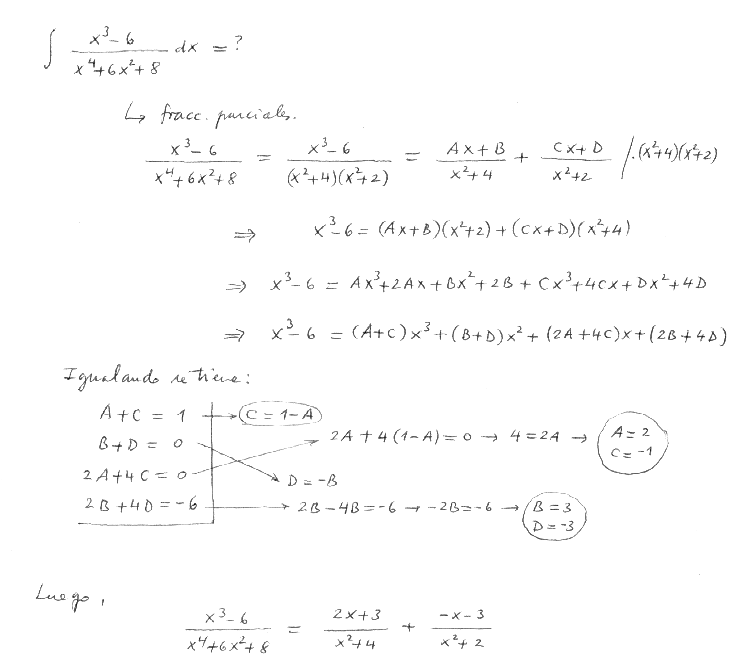 ∫ (x³-6)/(x⁴+6x²+8) dx = ?
↳ fracc. parciales.
(x³-6)/(x⁴+6x²+8) = (x³-6)/((x²+4)(x²+2)) = (Ax+B)/(x²+4) + (Cx+D)/(x²+2) /·(x²+4)(x²+2)
⇒ x³-6 = (Ax+B)(x²+2)+(Cx+D)(x²+4)
⇒ x³-6 = Ax³+2Ax+Bx²+2B+Cx³+4Cx+Dx²+4D
⇒ x³-6 = (A+C)x³+(B+D)x²+(2A+4C)x+(2B+4D)
Igualando se tiene:
A+C = 1 → C = 1-A
B+D = 0 → D = -B
2A+4C = 0 → 2A+4(1-A) = 0 → 4 = 2A → A = 2 C = -1
2B+4D = -6 → 2B-4B = -6 → -2B = -6 → B = 3 D = -3
Luego,
(x³-6)/(x⁴+6x²+8) = (2x+3)/(x²+4) + (-x-3)/(x²+2)